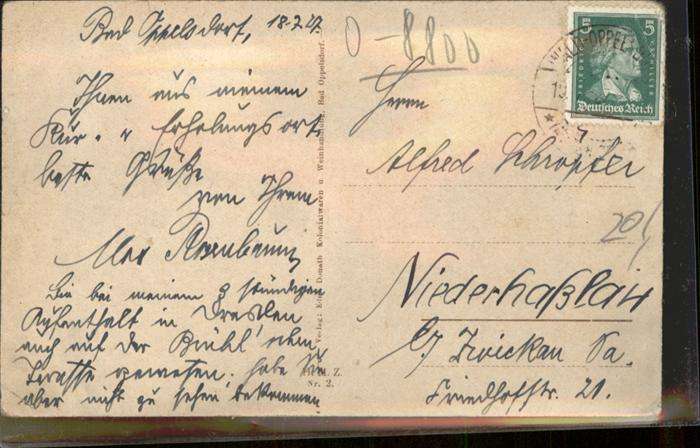 Bad Oppelsdorf, 18.7.27.
Ihnen aus meinem
Kur- u Erholungsort
beste Grüße
von Ihrem
Max Rosenbaum
Bin bei meinem 9 stündigen
Aufenthalt in Dresden
auch auf der Brühl'schen
Terasse gewesen, habe Sie
aber nicht zu sehen bekommen
Verlag: Donath Kolonialwaren u Weinhandlung, Bad Oppelsdorf.
Z.
Nr. 2.
0-8800
5 5
FRIEDRICH SCHILLER
Deutsches Reich
Herrn
Alfred Schropfer
20/
Niederhaßlau
b/ Zwickau Sa.
Friedhofstr. 21.